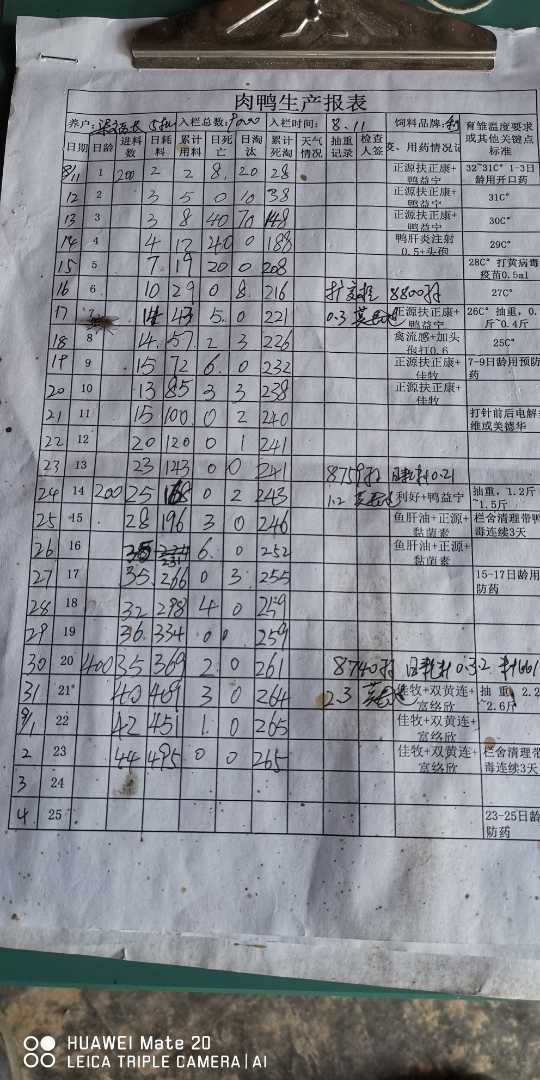 肉鸭生产报表
养户: 入栏总数:9000 入栏时间: 8.11 饲料品牌: 育雏温度要求或其他关键点标准
日期 日龄 进料数 日耗料 累计用料 日死亡 日淘汰 累计死淘 天气情况 抽重记录 检查人签 、用药情况记
8/11 1 200 2 2 8. 20 28 正源扶正康+鸭益宁 32~31C° 1-3日龄用开口药
12 2 3 5 0 10 38 正源扶正康+鸭益宁 31C°
13 3 3 8 40 70 148 正源扶正康+鸭益宁 30C°
14 4 4 12 40 0 188 鸭肝炎注射0.5+头孢 29C°
15 5 7 19 20 0 208 28C° 打黄病毒疫苗0.5ml
16 6 10 29 0 8 216 8800 27C°
17 7 14 43 5. 0 221 0.3 正源扶正康+鸭益宁 26C° 抽重,0.斤~0.4斤
18 8 14 57 2 3 226 禽流感+加头孢打0.6 25C°
19 9 15 72 6. 0 232 正源扶正康+佳牧 7-9日龄用预防药
20 10 13 85 3 3 238 正源扶正康+佳牧
21 11 15 100 0 2 240 打针前后电解维或美德华
22 12 20 120 0 1 241
23 13 23 143 0 0 241 8759 0.21
24 14 200 25 168 0 2 243 1.2 利好+鸭益宁 抽重,1.2斤~1.5斤
25 15 28 196 3 0 246 鱼肝油+正源+黏菌素 栏舍清理带鸭毒连续3天
26 16 35 231 6. 0 252 鱼肝油+正源+黏菌素
27 17 35 266 0 3 255 15-17日龄用防药
28 18 32 298 4 0 259
29 19 36 334 0 0 259
30 20 400 35 369 2 0 261 8740 0.32
31 21 40 409 3 0 264 2.3 佳牧+双黄连+富络欣 抽重,2.2~2.6斤
9/1 22 42 451 1. 0 265 佳牧+双黄连+富络欣
2 23 44 495 0 0 265 佳牧+双黄连+富络欣 栏舍清理带毒连续3天
3 24
4 25 23-25日龄防药
HUAWEI Mate 20
LEICA TRIPLE CAMERA | AI